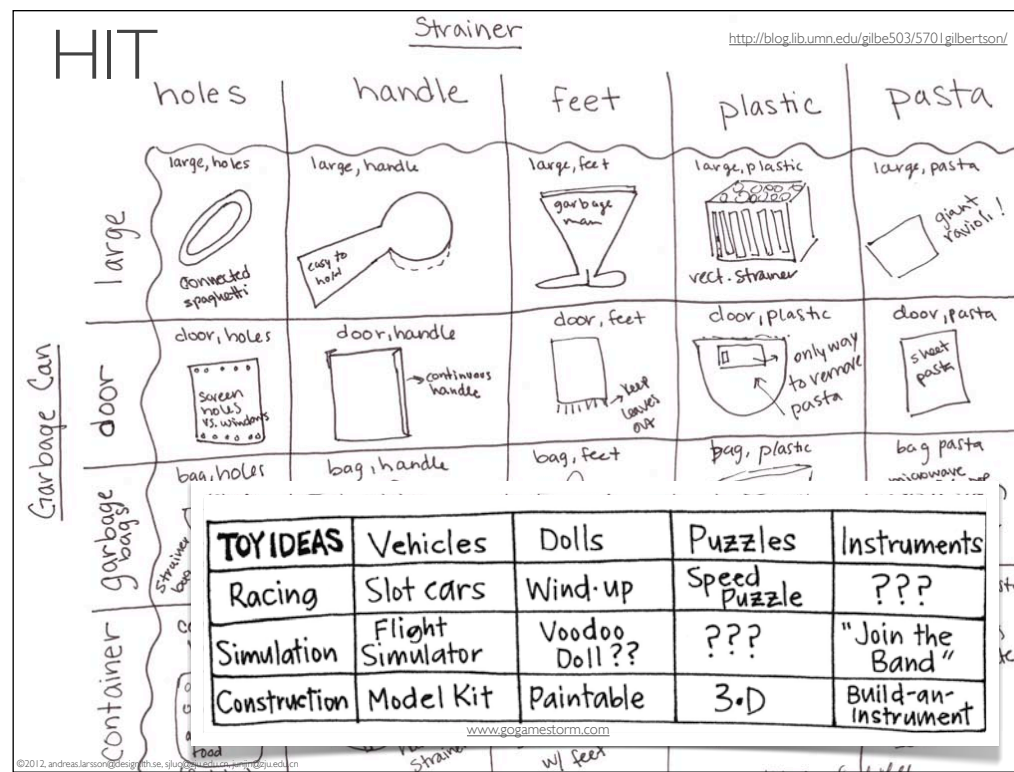 HIT
Strainer
http://blog.lib.umn.edu/gilbe503/5701gilbertson/
holes handle feet plastic pasta
Garbage Can
large
large, holes
connected
spaghetti
large, handle
easy to
hold
large, feet
garbage
man
large, plastic
rect. strainer
large, pasta
giant
ravioli!
door
door, holes
screen
holes
vs. windows
door, handle
continuous
handle
door, feet
keep
leaves
out
door, plastic
only way
to remove
pasta
door, pasta
sheet
pasta
garbage
bags
bag, holes
strainer
bag, handle
bag, feet
bag, plastic
bag pasta
microwave
container
food
strainer
w/ feet
TOY IDEAS Vehicles Dolls Puzzles Instruments
Racing Slot cars Wind-up Speed Puzzle ???
Simulation Flight Simulator Voodoo Doll ?? ??? "Join the Band"
Construction Model Kit Paintable 3-D Build-an-Instrument
www.gogamestorm.com
©2012, andreas.larsson@design.lth.se, sjluo@zju.edu.cn, junjin@zju.edu.cn